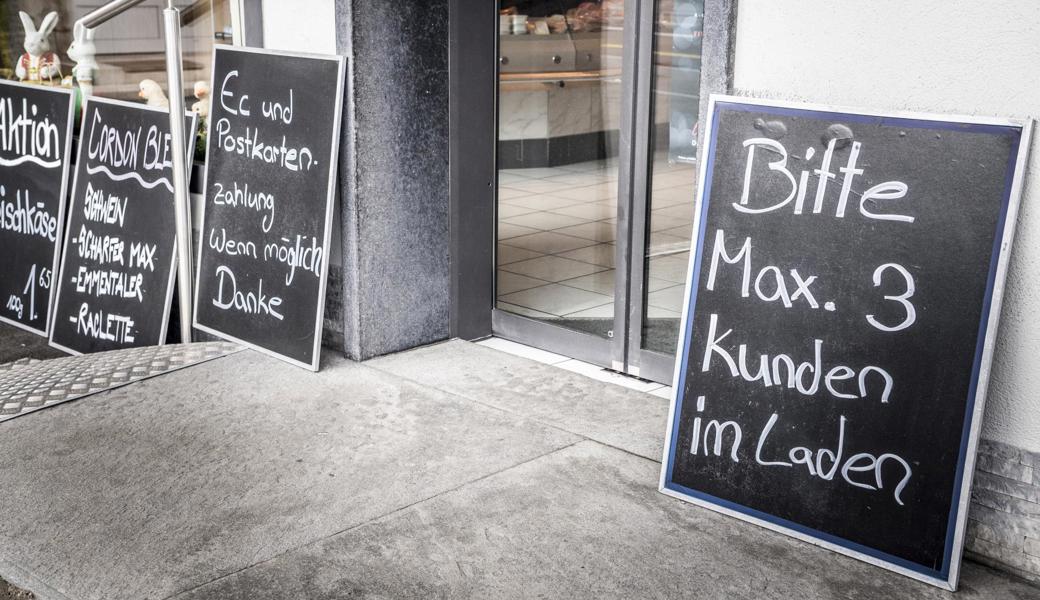 Aktion
1.65
100g
CORDON BLE
SCHWEIN
-SCHARFER MAX
-EMMENTALER
-RACLETTE
Ec und
Postkarten-
zahlung
Wenn möglich
Danke
Bitte
Max. 3
Kunden
im Laden